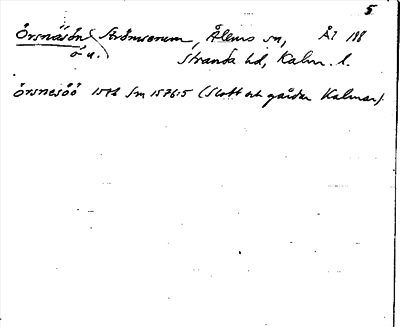 5
Örsnäsön Strömserum, Ålems sn, Ål 188
ö u. Stranda hd, Kalm. l.
örsnesöö 1576 Sm 1576:5 (Slott och gårdar Kalmar).